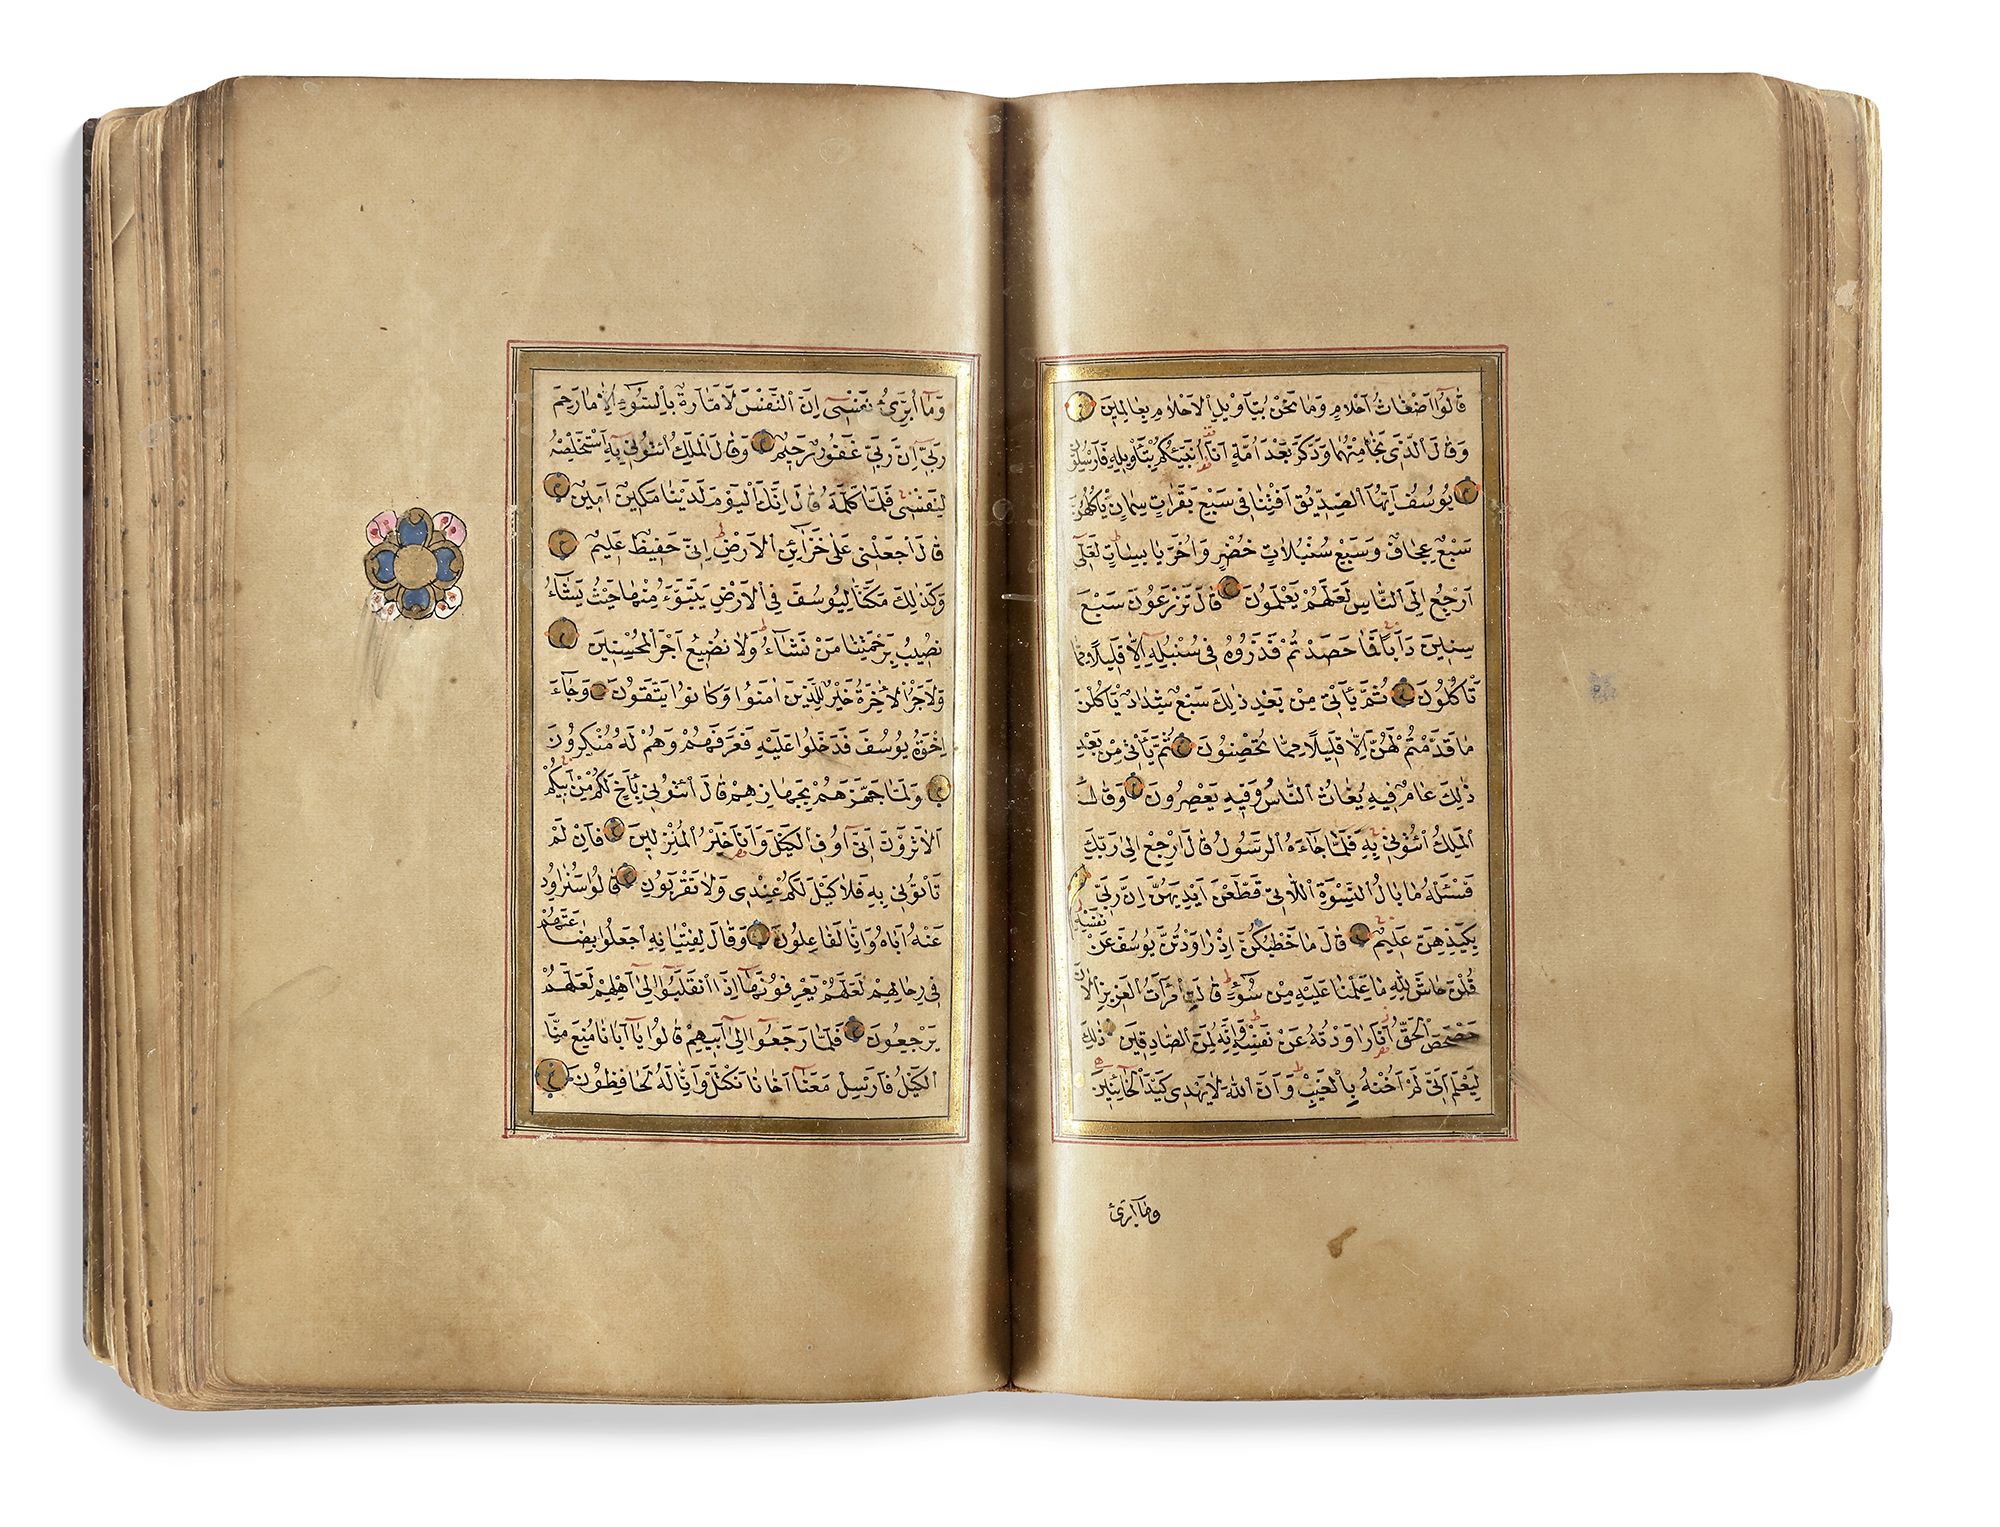 قَالُوا اَضْغَاثُ اَحْلَامٍ وَمَا نَحْنُ بِتَاْوِيلِ الْاَحْلَامِ بِعَالِمِينَ
وَقَالَ الَّذِى نَجَا مِنْهُمَا وَدَّكَرَ بَعْدَ اُمَّةٍ اَنَا۬ اُنَبِّئُكُمْ بِتَاْوِيلِهِ فَاَرْسِلُونِ
يُوسُفُ اَيُّهَا الصِّدِّيقُ اَفْتِنَا فِى سَبْعِ بَقَرَاتٍ سِمَانٍ يَاْكُلُهُنَّ
سَبْعٌ عِجَافٌ وَسَبْعِ سُنْبُلَاتٍ خُضْرٍ وَاُخَرَ يَابِسَاتٍ لَعَلِّى
اَرْجِعُ اِلَى النَّاسِ لَعَلَّهُمْ يَعْلَمُونَ قَالَ تَزْرَعُونَ سَبْعَ
سِنِينَ دَاَبًا فَمَا حَصَدْتُمْ فَذَرُوهُ فِى سُنْبُلِهِ اِلَّا قَلِيلًا مِمَّا
تَاْكُلُونَ ثُمَّ يَاْتِى مِنْ بَعْدِ ذٰلِكَ سَبْعٌ شِدَادٌ يَاْكُلْنَ
مَا قَدَّمْتُمْ لَهُنَّ اِلَّا قَلِيلًا مِمَّا تُحْصِنُونَ ثُمَّ يَاْتِى مِنْ بَعْدِ
ذٰلِكَ عَامٌ فِيهِ يُغَاثُ النَّاسُ وَفِيهِ يَعْصِرُونَ وَقَالَ
الْمَلِكُ ائْتُونِى بِهِ فَلَمَّا جَاءَهُ الرَّسُولُ قَالَ ارْجِعْ اِلٰى رَبِّكَ
فَسْئَلْهُ مَا بَالُ النِّسْوَةِ اللَّاتِى قَطَّعْنَ اَيْدِيَهُنَّ اِنَّ رَبِّى
بِكَيْدِهِنَّ عَلِيمٌ قَالَ مَا خَطْبُكُنَّ اِذْ رَاوَدْتُنَّ يُوسُفَ عَنْ نَفْسِهِ
قُلْنَ حَاشَ لِلّٰهِ مَا عَلِمْنَا عَلَيْهِ مِنْ سُوءٍ قَالَتِ امْرَاَتُ الْعَزِيزِ الْاٰنَ
حَصْحَصَ الْحَقُّ اَنَا۬ رَاوَدْتُهُ عَنْ نَفْسِهِ وَاِنَّهُ لَمِنَ الصَّادِقِينَ ذٰلِكَ
لِيَعْلَمَ اَنِّى لَمْ اَخُنْهُ بِالْغَيْبِ وَاَنَّ اللّٰهَ لَا يَهْدِى كَيْدَ الْخَائِنِينَ
وَمَا اُبَرِّئُ
وَمَا اُبَرِّئُ نَفْسِى اِنَّ النَّفْسَ لَاَمَّارَةٌ بِالسُّوءِ اِلَّا مَا رَحِمَ
رَبِّى اِنَّ رَبِّى غَفُورٌ رَحِيمٌ وَقَالَ الْمَلِكُ ائْتُونِى بِهِ اَسْتَخْلِصْهُ
لِنَفْسِى فَلَمَّا كَلَّمَهُ قَالَ اِنَّكَ الْيَوْمَ لَدَيْنَا مَكِينٌ اَمِينٌ
قَالَ اجْعَلْنِى عَلٰى خَزَائِنِ الْاَرْضِ اِنِّى حَفِيظٌ عَلِيمٌ
وَكَذٰلِكَ مَكَّنَّا لِيُوسُفَ فِى الْاَرْضِ يَتَبَوَّءُ مِنْهَا حَيْثُ يَشَاءُ
نُصِيبُ بِرَحْمَتِنَا مَنْ نَشَاءُ وَلَا نُضِيعُ اَجْرَ الْمُحْسِنِينَ
وَلَاَجْرُ الْاٰخِرَةِ خَيْرٌ لِلَّذِينَ اٰمَنُوا وَكَانُوا يَتَّقُونَ وَجَاءَ
اِخْوَةُ يُوسُفَ فَدَخَلُوا عَلَيْهِ فَعَرَفَهُمْ وَهُمْ لَهُ مُنْكِرُونَ
وَلَمَّا جَهَّزَهُمْ بِجَهَازِهِمْ قَالَ ائْتُونِى بِاَخٍ لَكُمْ مِنْ اَبِيكُمْ
اَلَا تَرَوْنَ اَنِّى اُوفِى الْكَيْلَ وَاَنَا۬ خَيْرُ الْمُنْزِلِينَ فَاِنْ لَمْ
تَاْتُونِى بِهِ فَلَا كَيْلَ لَكُمْ عِنْدِى وَلَا تَقْرَبُونِ قَالُوا سَنُرَاوِدُ
عَنْهُ اَبَاهُ وَاِنَّا لَفَاعِلُونَ وَقَالَ لِفِتْيَانِهِ اجْعَلُوا بِضَاعَتَهُمْ
فِى رِحَالِهِمْ لَعَلَّهُمْ يَعْرِفُونَهَا اِذَا انْقَلَبُوا اِلٰى اَهْلِهِمْ لَعَلَّهُمْ
يَرْجِعُونَ فَلَمَّا رَجَعُوا اِلٰى اَبِيهِمْ قَالُوا يَا اَبَانَا مُنِعَ مِنَّا
الْكَيْلُ فَاَرْسِلْ مَعَنَا اَخَانَا نَكْتَلْ وَاِنَّا لَهُ لَحَافِظُونَ